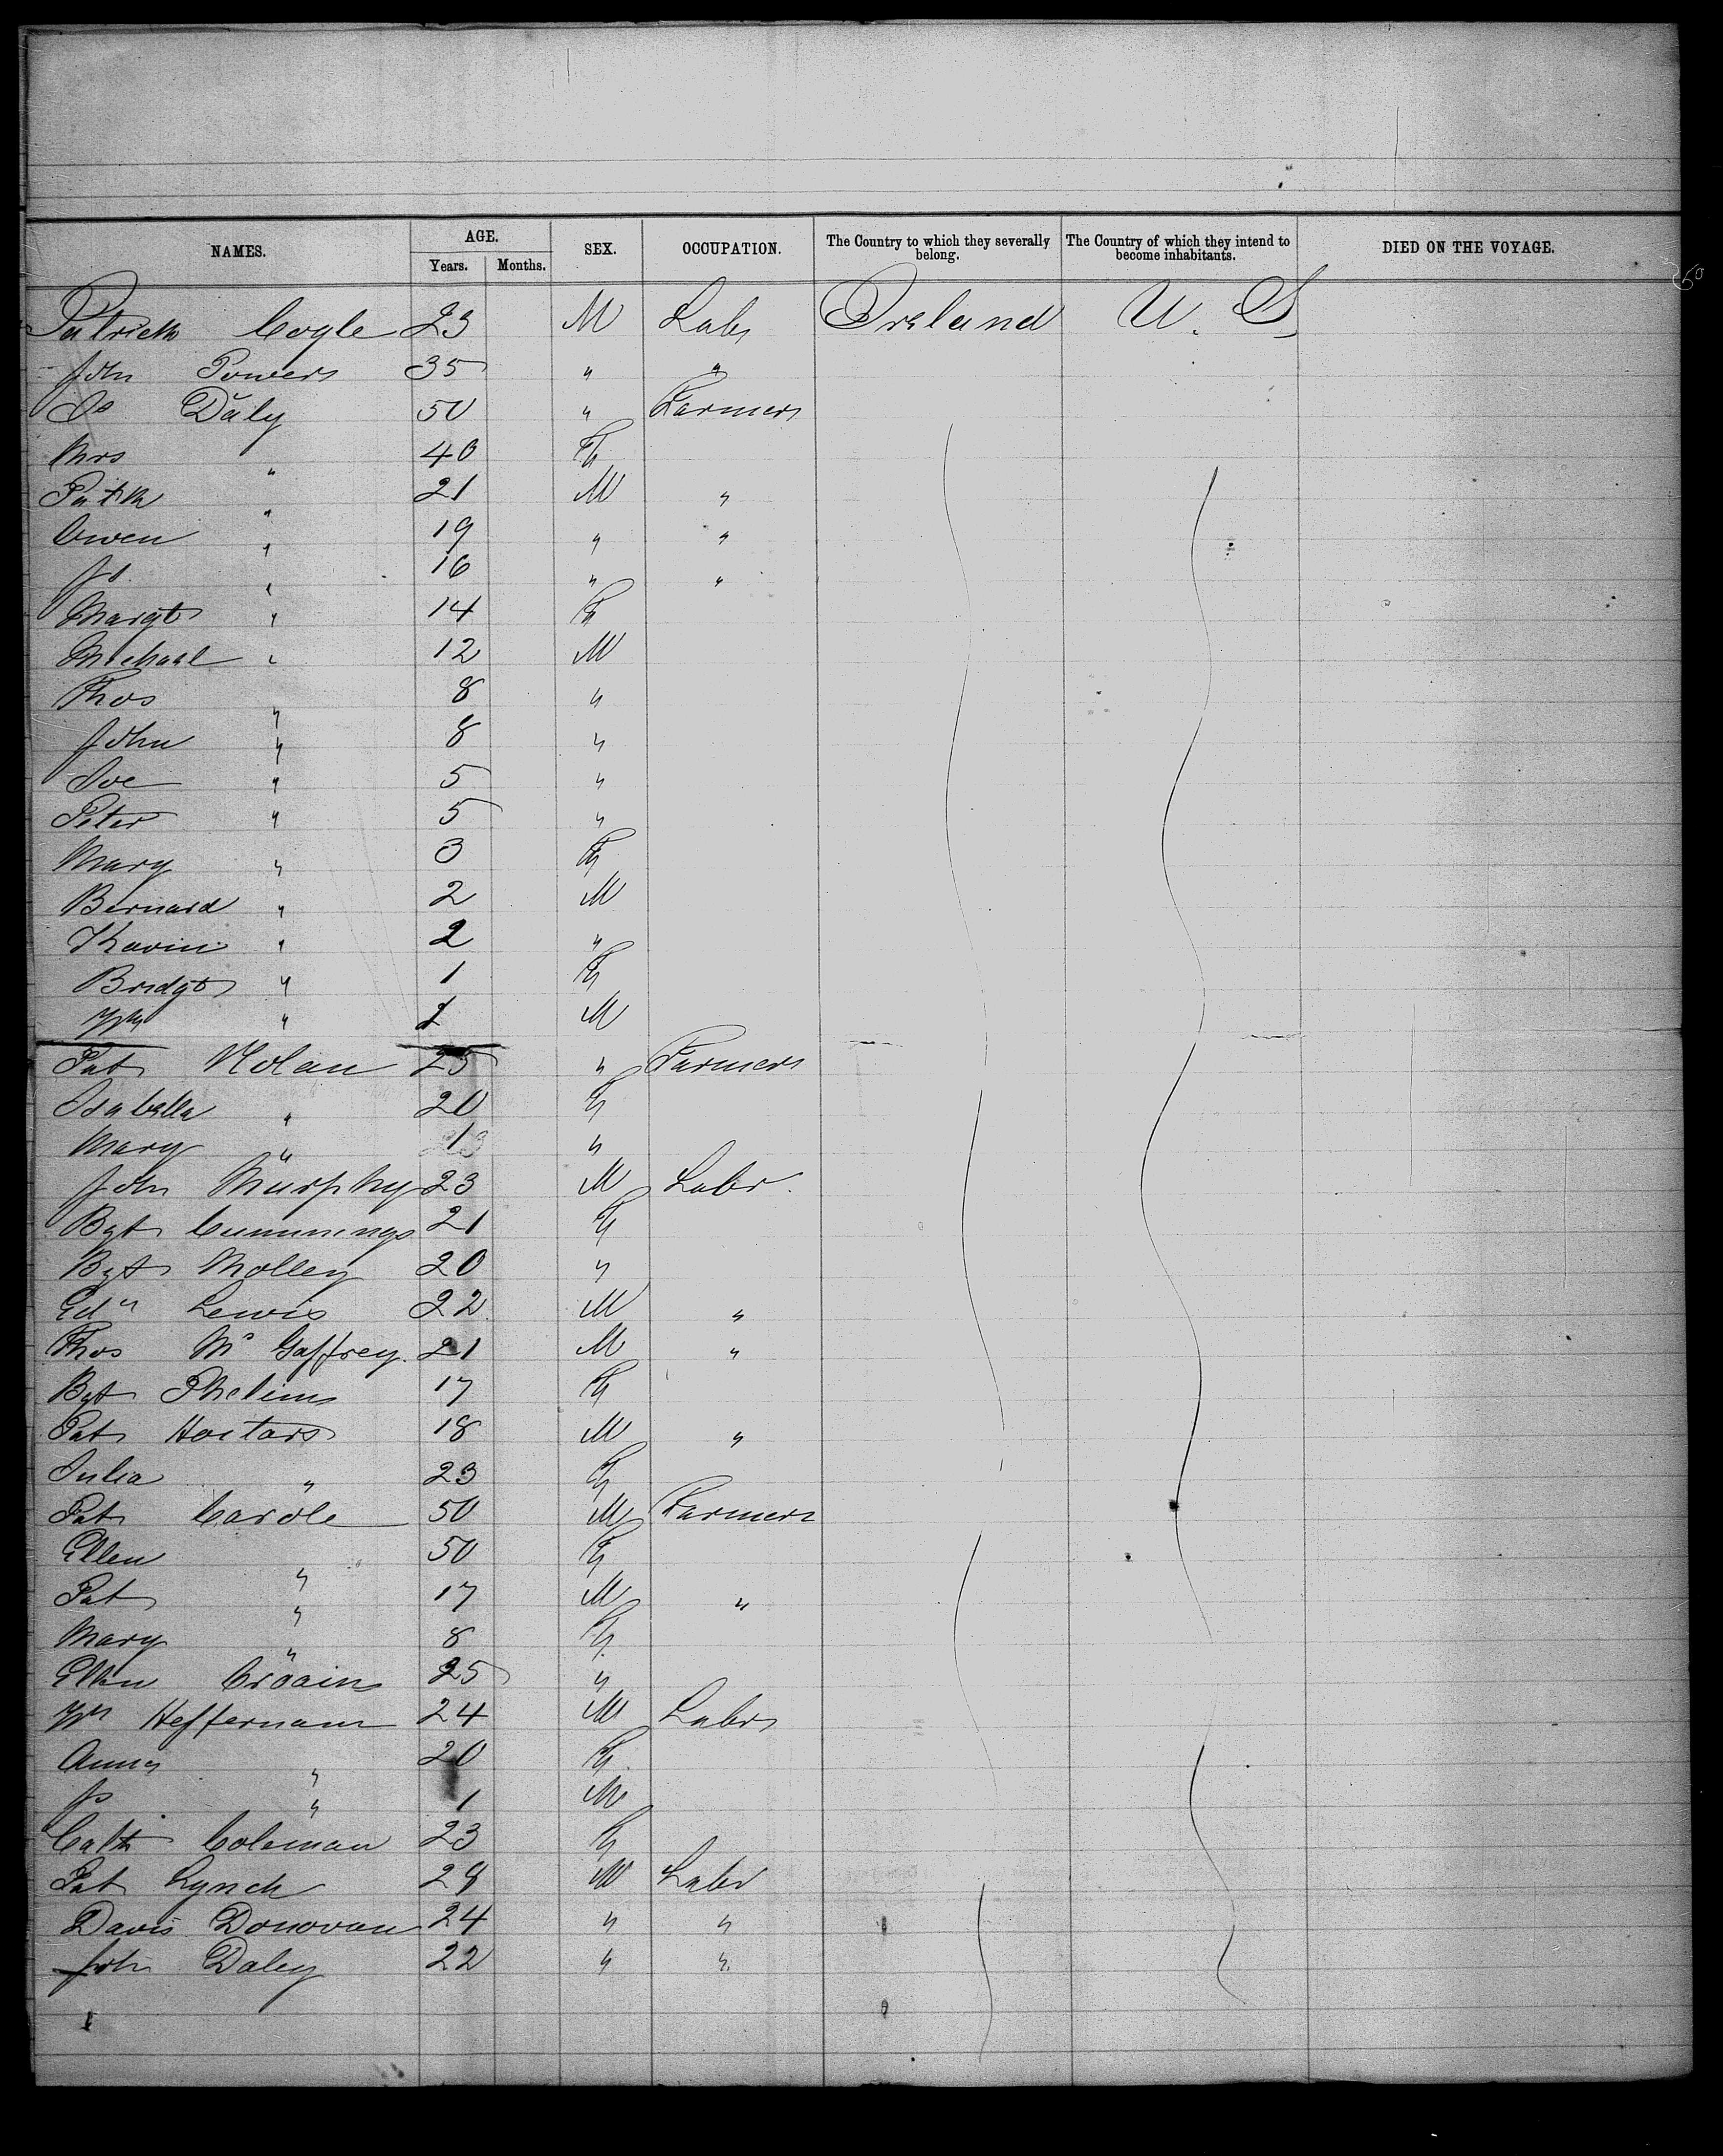 NAMES. AGE. Years. Months. SEX. OCCUPATION. The Country to which they severally belong. The Country of which they intend to become inhabitants. DIED ON THE VOYAGE.
Patrick Coyle 23 M Labr Ireland U. S
John Powers 35 " "
Do Daly 50 " Farmers
Mrs " 40 F
Patk " 21 M "
Owen " 19 " "
Js " 16 " "
Margt " 14 F
Michael " 12 M
Thos " 8 "
John " 8 "
Joe " 5 "
Peter " 5 "
Mary " 3 F
Bernard " 2 M
Kavin " 2 "
Bridgt " 1 F
Wm " M
Pat Nolan 25 " Farmers
Isabella " 20 F
Mary " 1 "
John Murphy 23 M Labr.
Bgt Cummings 21 F
Bgt Molley 20 "
Edn Lewis 22 M "
Thos Mc Gaffrey 21 M "
Bgt Phelims 17 F
Pat 18 M "
Julia " 23 F
Pat Carole 50 M Farmers
Ellen " 50 F
Pat " 17 M "
Mary " 8 F
Ellen 25 "
Wm Heffernan 24 M Labr
Anny " 20 F
Js " 1 M
Cath Coleman 23 F
Pat Lynch 28 M Labr
Davis Donovan 24 " "
John Daley 22 " "